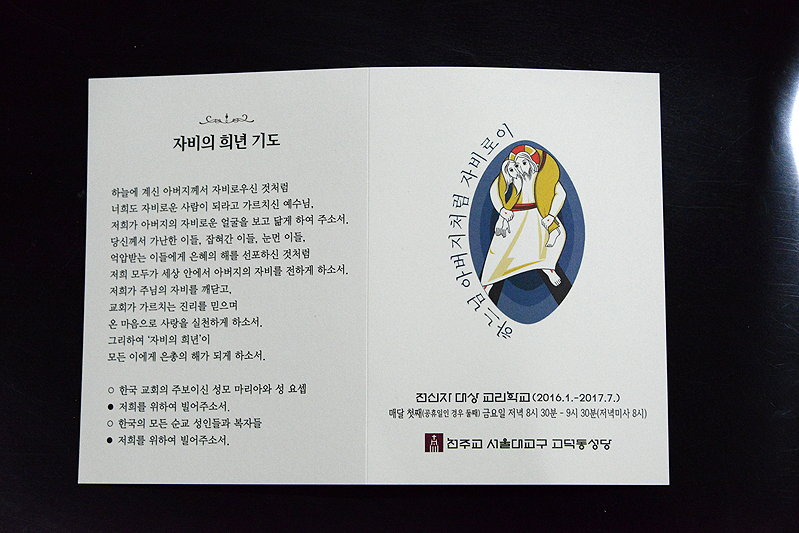 자비의 희년 기도
하늘에 계신 아버지께서 자비로우신 것처럼
너희도 자비로운 사람이 되라고 가르치신 예수님,
저희가 아버지의 자비로운 얼굴을 보고 닮게 하여 주소서.
당신께서 가난한 이들, 잡혀간 이들, 눈먼 이들,
억압받는 이들에게 은혜의 해를 선포하신 것처럼
저희 모두가 세상 안에서 아버지의 자비를 전하게 하소서.
저희가 주님의 자비를 깨닫고,
교회가 가르치는 진리를 믿으며
온 마음으로 사랑을 실천하게 하소서.
그리하여 ‘자비의 희년’이
모든 이에게 은총의 해가 되게 하소서.
○ 한국 교회의 주보이신 성모 마리아와 성 요셉
● 저희를 위하여 빌어주소서.
○ 한국의 모든 순교 성인들과 복자들
● 저희를 위하여 빌어주소서.
하느님 아버지처럼 자비로이
전신자 대상 교리학교(2016.1.-2017.7.)
매달 첫째(공휴일인 경우 둘째) 금요일 저녁 8시 30분 - 9시 30분(저녁미사 8시)
천주교 서울대교구 고덕동성당